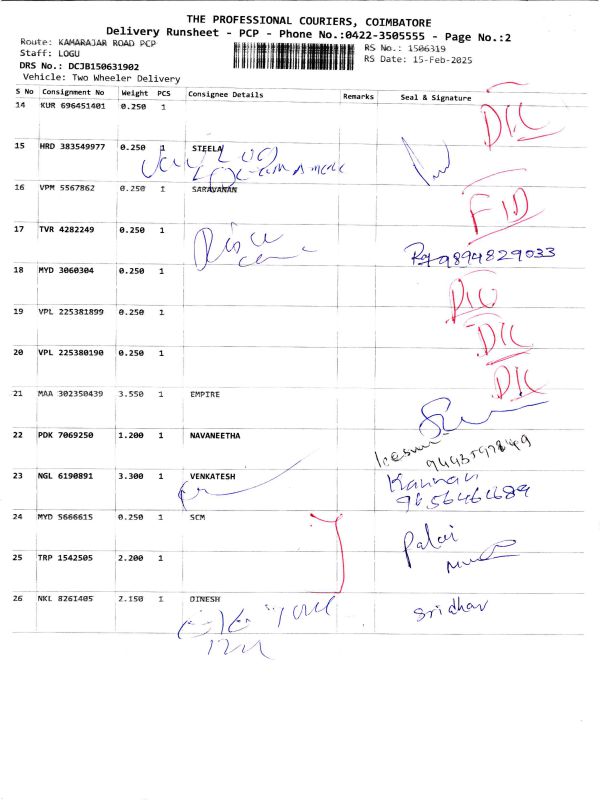 THE PROFESSIONAL COURIERS, COIMBATORE
Delivery Runsheet - PCP - Phone No.:0422-3505555 - Page No.:2
Route: KAMARAJAR ROAD PCP
RS No.: 1506319
Staff: LOGU
RS Date: 15-Feb-2025
DRS No.: DCJB150631902
Vehicle: Two Wheeler Delivery
S No Consignment No Weight PCS Consignee Details Remarks Seal & Signature
14 KUR 696451401 0.250 1
DIC
15 HRD 383549977 0.250 1 STEELA
16 VPM 5567862 0.250 1 SARAVANAN
FID
17 TVR 4282249 0.250 1
9894829033
18 MYD 3060304 0.250 1
DIC
19 VPL 225381899 0.250 1
DIC
20 VPL 225380190 0.250 1
DIC
21 MAA 302350439 3.550 1 EMPIRE
22 PDK 7069250 1.200 1 NAVANEETHA
23 NGL 6190891 3.300 1 VENKATESH
Kannan
9456464689
24 MYD 5666615 0.250 1 SCM
Palai
25 TRP 1542505 2.200 1
26 NKL 8261405 2.150 1 DINESH
Sridhar